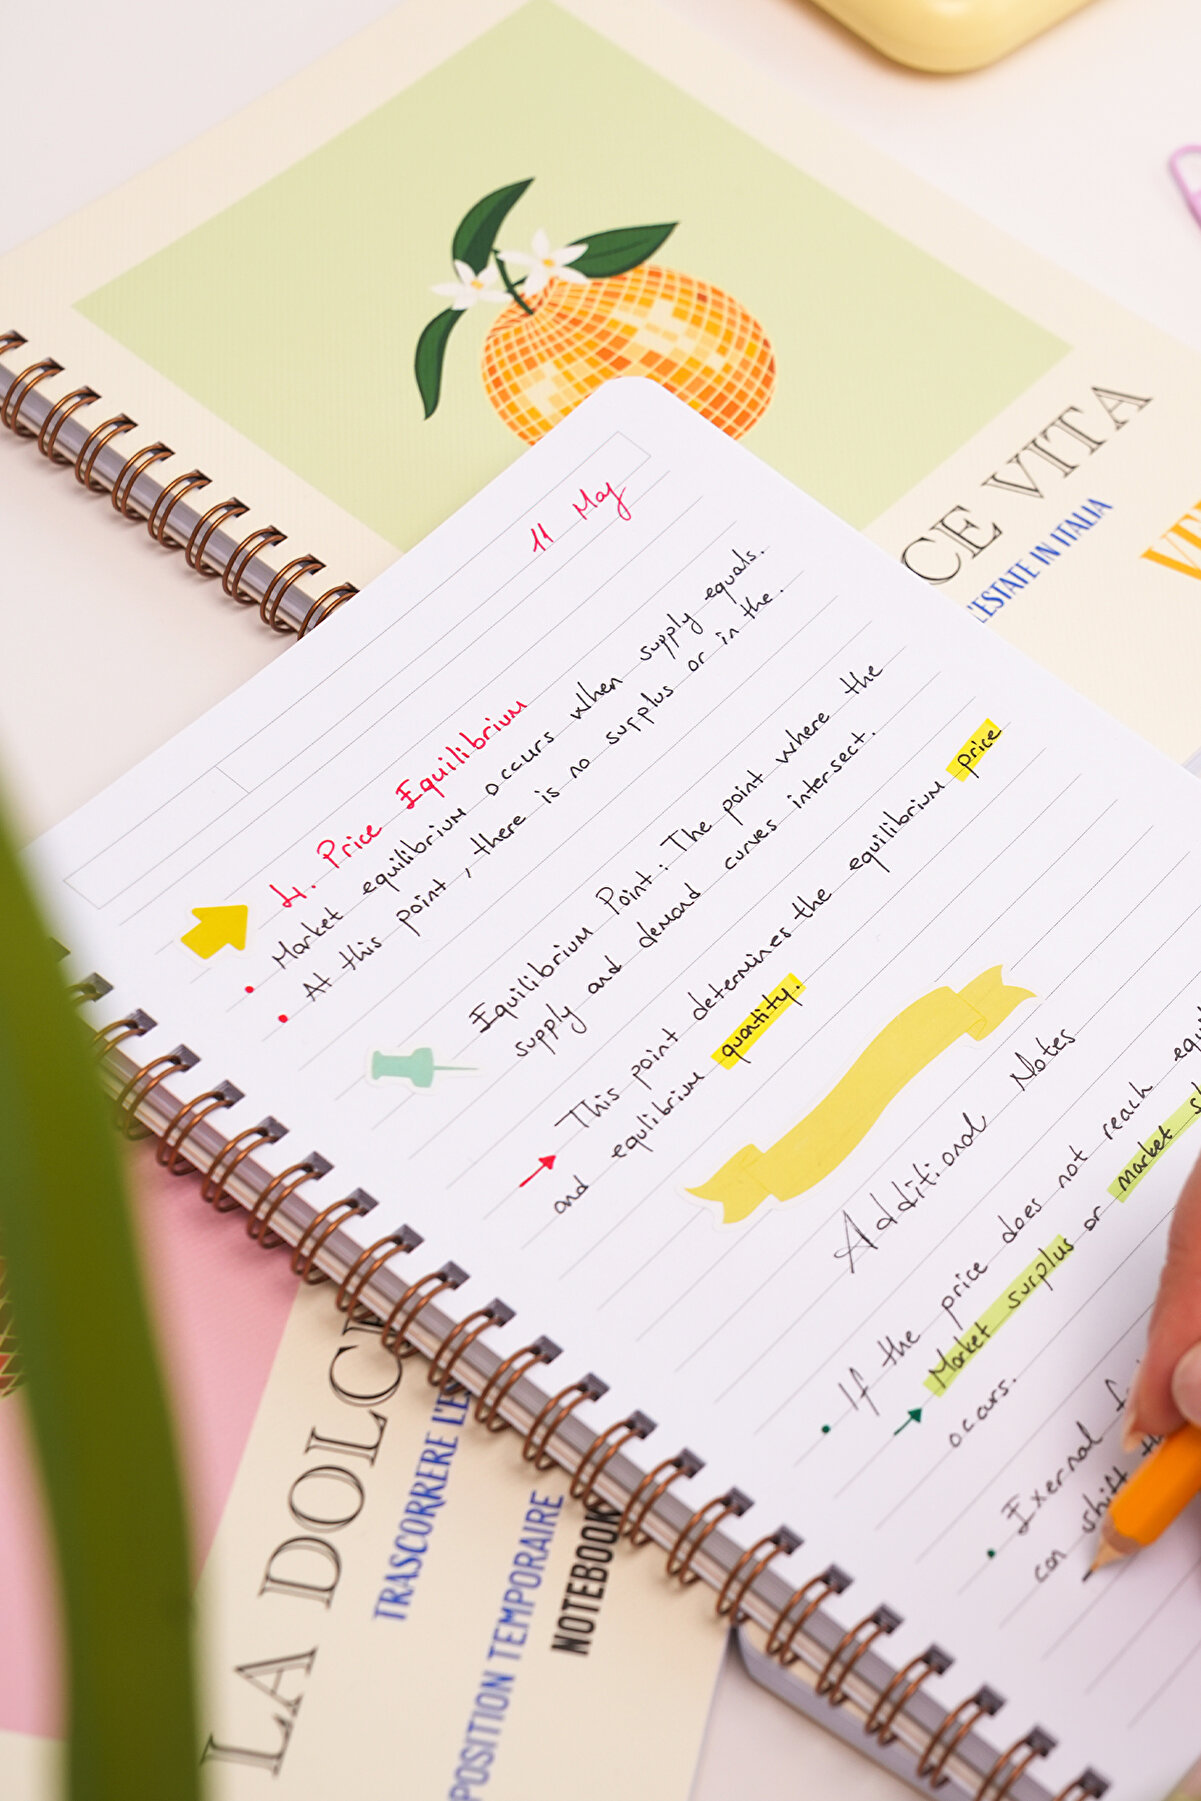 CE VITA
L'ESTATE IN ITALIA
11 May
4. Price Equilibrium
Market equilibrium occurs when supply equals.
At this point, there is no surplus or in the.
Equilibrium Point: The point where the
supply and demand curves intersect.
This point determines the equilibrium price
and equlibrium quantity.
Additional Notes
If the price does not reach
Market surplus or market
occurs.
Exernal
can shift
LA DOLCE
TRASCORRERE L'E
POSITION TEMPORAIRE
NOTEBOOK